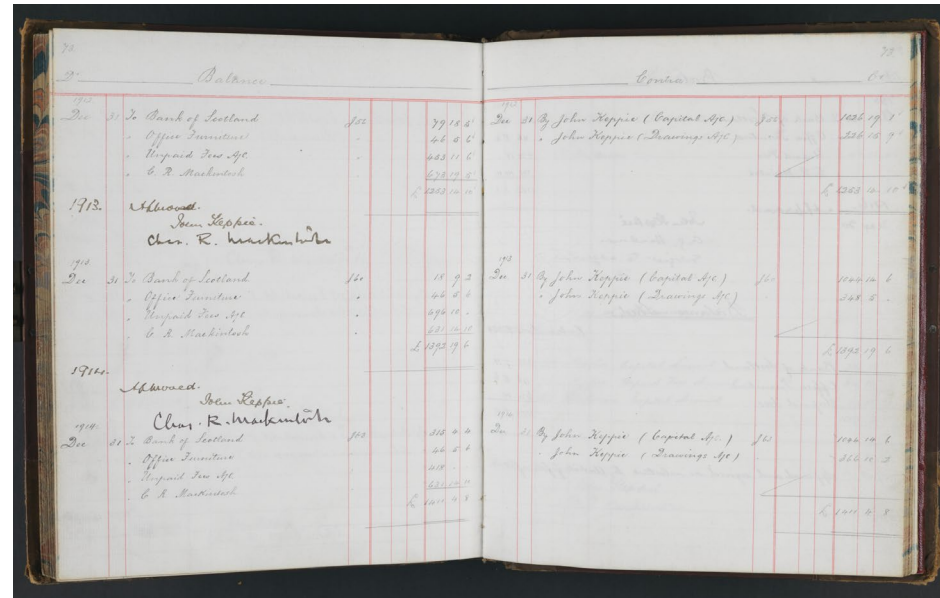 72
Dr Balance
1912
Dec 31 To Bank of Scotland 79 18 6
" Office Furniture 46 5 6
" Unpaid Fees A/c
" C. R. Mackintosh
£ 1253 14 10
1913. Approved.
John Keppie.
Chas. R. Mackintosh
1913
Dec 31 To Bank of Scotland f60 18 9 2
" Office Furniture " 46 5 6
" Unpaid Fees A/c " 696 10 -
" C R Mackintosh 631 14 10
£ 1392 19 6
1914.
Approved.
John Keppie.
Chas. R. Mackintosh
1914
Dec 31 To Bank of Scotland 315 4 4
" Office Furniture 46 5 6
" Unpaid Fees A/c 418
" C R Mackintosh 631 14 10
£ 1411 4 8
72
Contra Cr
Dec 31 By John Keppie (Capital A/c)
" John Keppie (Drawings A/c)
£ 1253 14 10
1913
Dec 31 By John Keppie (Capital A/c) f60 1044 14 6
" John Keppie (Drawings A/c) 348 5 -
£ 1392 19 6
1914
Dec 31 By John Keppie (Capital A/c) 1044 14 6
" John Keppie (Drawings A/c) 366 10 2
£ 1411 4 8